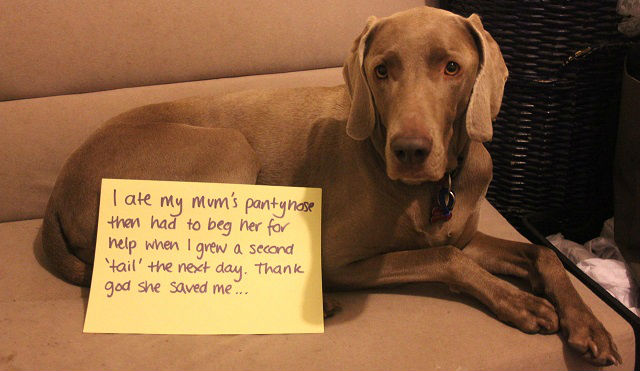 I ate my mum's pantyhose
then had to beg her for
help when I grew a second
'tail' the next day. Thank
god she saved me...